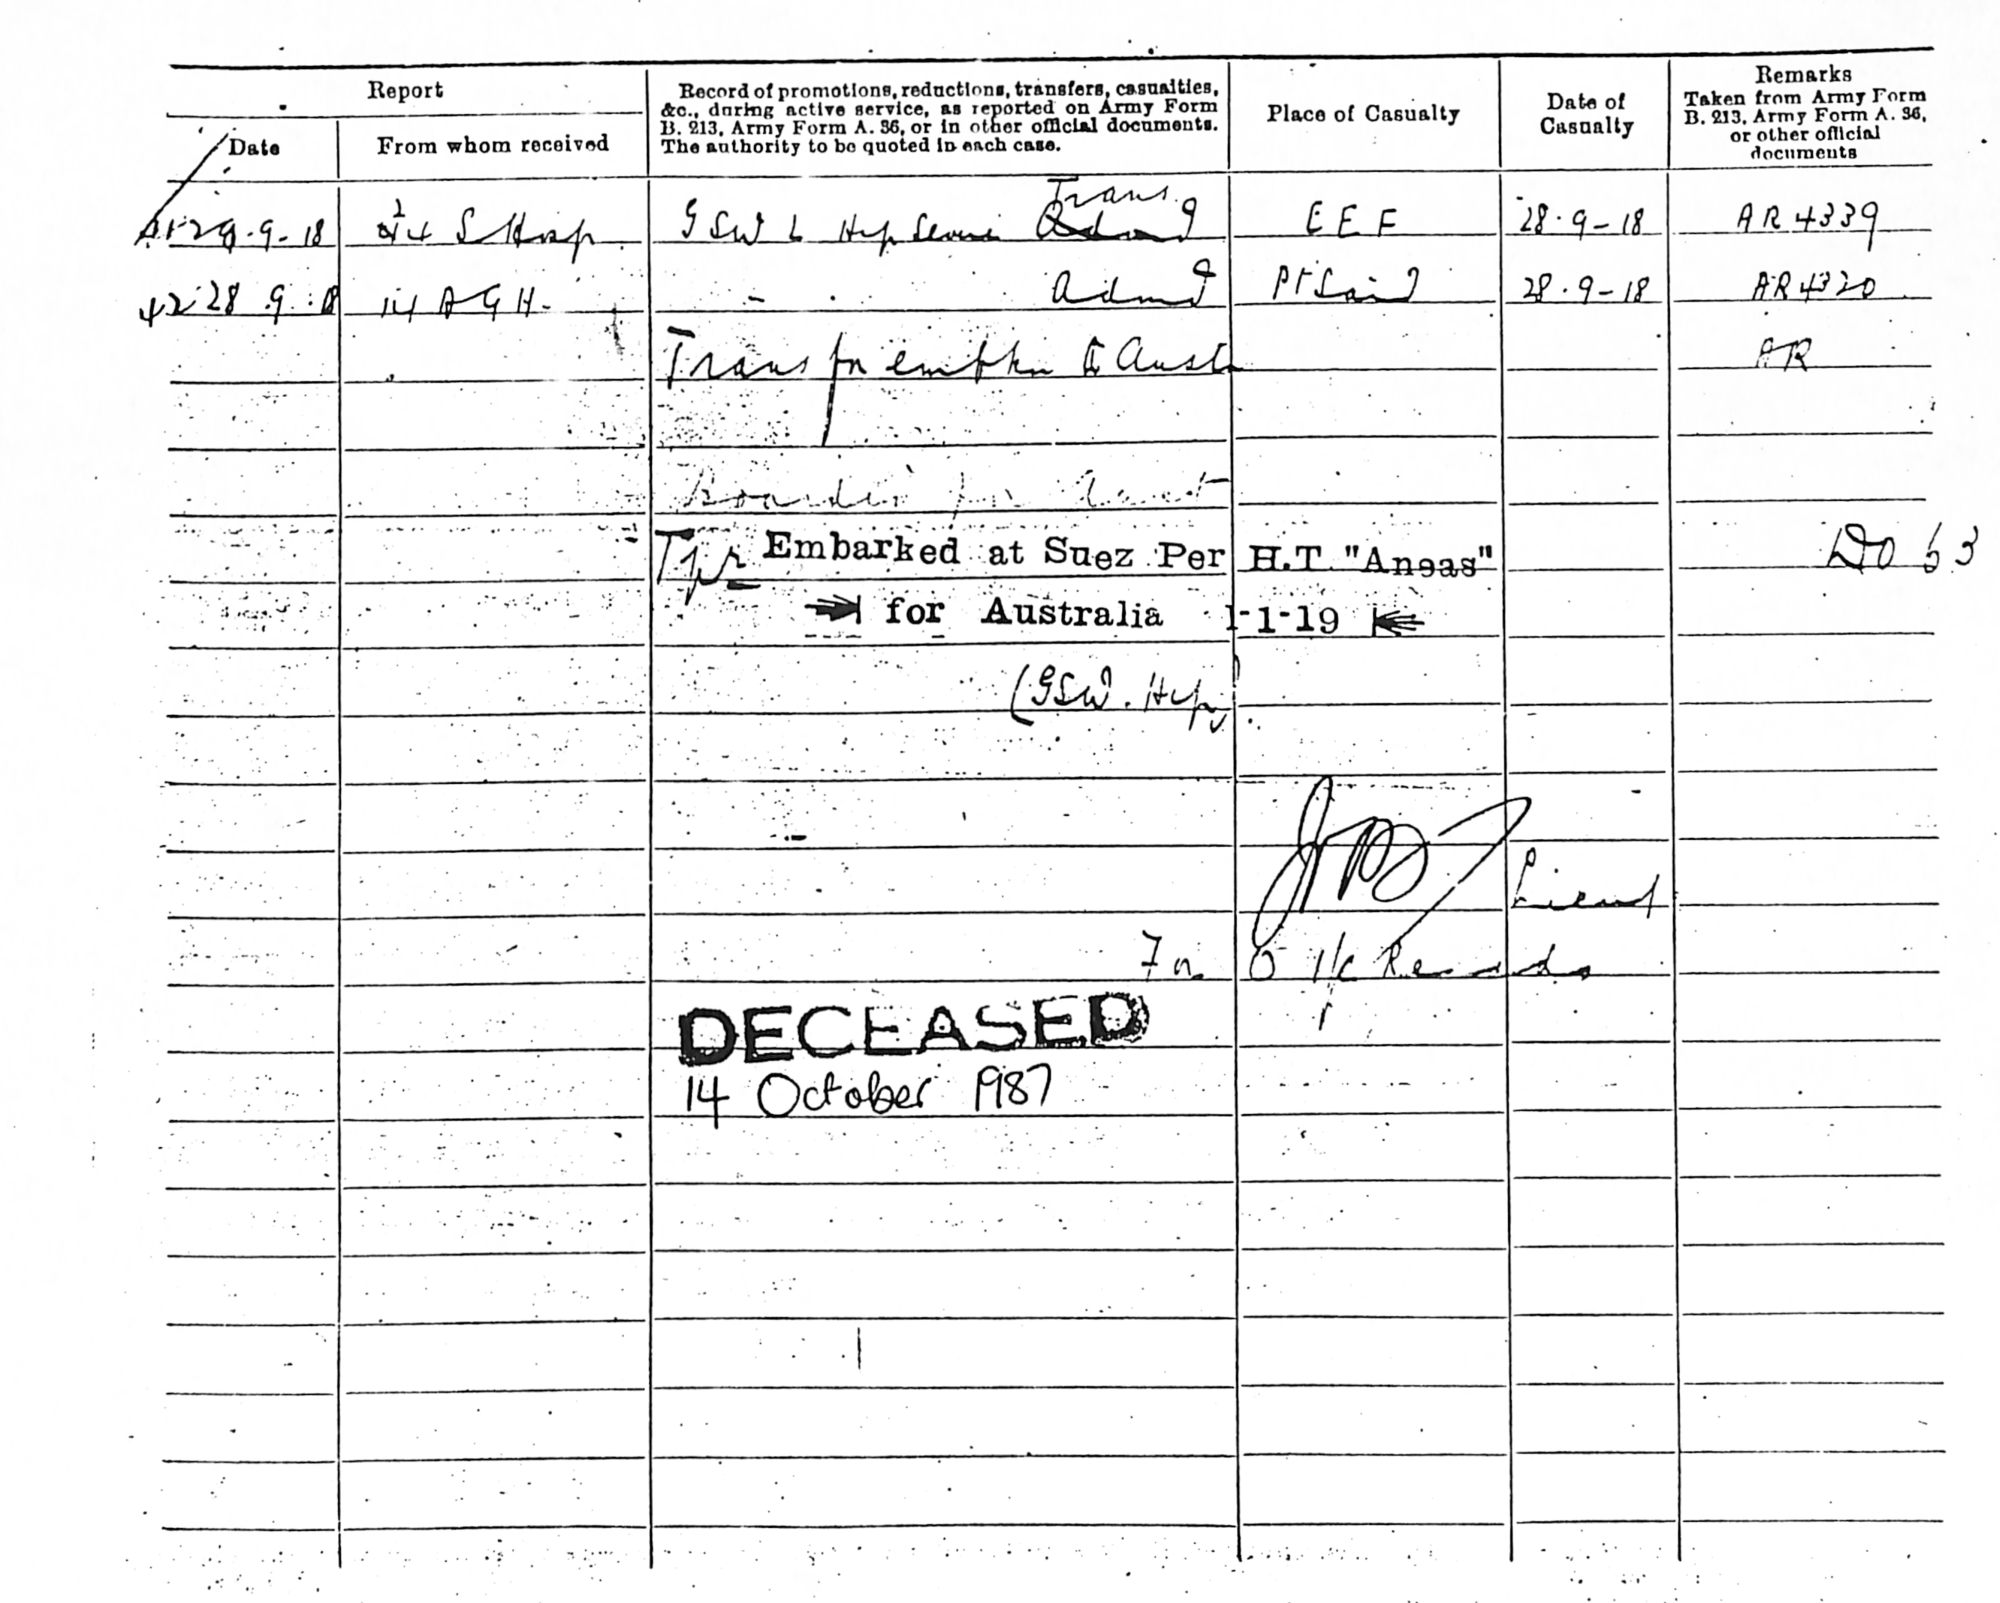 Report
Date
From whom received
Record of promotions, reductions, transfers, casualties,
&c., during active service, as reported on Army Form
B. 213, Army Form A. 36, or in other official documents.
The authority to be quoted in each case.
Place of Casualty
Date of
Casualty
Remarks
Taken from Army Form
B. 213, Army Form A. 36,
or other official
documents
Trans
9-18 24 S Hosp GSW L Hip Severe Admd E E F 28.9-18 AR 4339
42 28 9.18 14 A G H - Admd Pt Said 28.9-18 AR 4320
Trans for embkn to Aust AR
for Aust
Tpr Embarked at Suez Per H.T. "Aneas" DO 63
for Australia 1-1-19
(GSW. Hip)
Lieut
For O i/c Records
DECEASED
14 October 1987